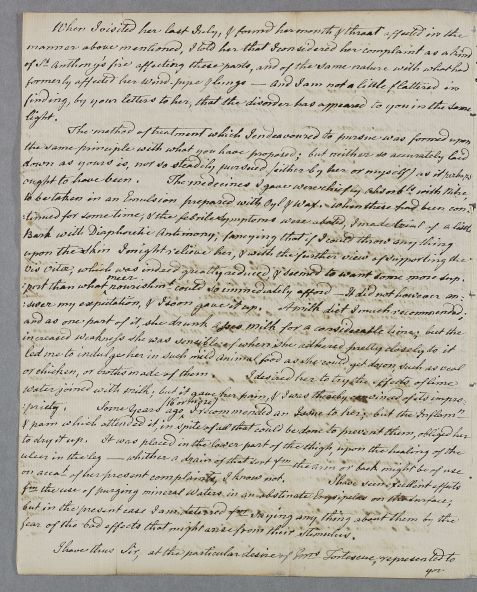 When I visited her last July, & found her mouth & throat affected in the
manner above mentioned, I told her that I considered her complaint as a kind
of St. Anthony's fire affecting these parts, and of the same nature with what had
formerly affected her Wind-pipe & lungs — And I am not a little flattered in
finding, by your letters to her, that the disorder has appeared to you in the same
light.
The method of treatment which I endeavoured to pursue was formed upon
the same principle with what you have proposed; but neither so accurately laid
down as yours is, nor so steadily pursued (either by her or myself) as it perhaps
ought to have been. The medecines I gave were chiefly absorbts. with Nitre
to be taken in an Emulsion prepared with Oyl & Wax. When these had been con-
tinued for some time, & the febrile symptoms were abated, I made trial of a little
Bark with Diaphoretic Antimony, fancying that if I could throw any thing
upon the skin I might relieve her, & with the further view of supporting the
Vis vitæ, which was indeed greatly reduced, & seemed to want some more sup-
port than what meer nourishmt. could so immediately afford — It did not however an-
swer my expectation, & I soon gave it up. A milk diet I much recommended;
and as one part of it, she drank milk for a considerable time; but the
increased weakness she was sensible of when she adhered pretty closely to it
led me to indulge her in such mild animal food as she could get down such as veal
or chicken, or broths made of them. I desired her to try the effects of lime
water joined with milk, but it gave her pain, & I was thereby convinced of its impro-
priety. Some Years ago I recommended an Issue to her; but the Inflammn.
& pain which attended it in spite of all that could be done to prevent them, obliged her
to dry it up. It was placed in the lower part of the thigh, upon the healing of the
ulcer in the leg — whether a drain of that sort fm. the arm or back might be of use
on acct. of her present complaints, I know not. I have seen excellent effects
fm. the use of purging mineral Waters in an obstinate Erysipelas on the surface;
but in the present case I am deterred fm. saying any thing about them by the
fear of the bad effects that might arise from their stimulus.
I have thus Sir, at the particular desire of Fortescue, represented to
you